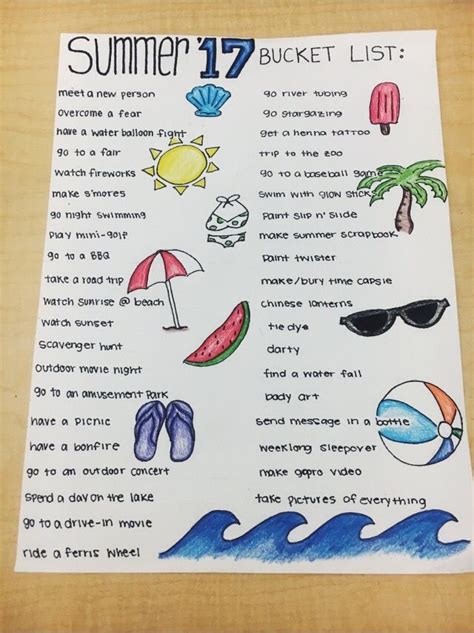 Summer '17 BUCKET LIST:
meet a new person
overcome a fear
have a water balloon fight
go to a fair
watch fireworks
make s'mores
go night swimming
play mini-golf
go to a BBQ
take a road trip
watch sunrise @ beach
watch sunset
scavenger hunt
outdoor movie night
go to an amusement park
have a picnic
have a bonfire
go to an outdoor concert
spend a day on the lake
go to a drive-in movie
ride a ferris wheel
go river tubing
go stargazing
get a henna tattoo
trip to the zoo
go to a baseball game
swim with glow sticks
paint slip n' slide
make summer scrapbook
paint twister
make/bury time capsle
chinese lanterns
tie dye
darty
find a water fall
body art
send message in a bottle
weeklong sleepover
make gopro video
take pictures of everything